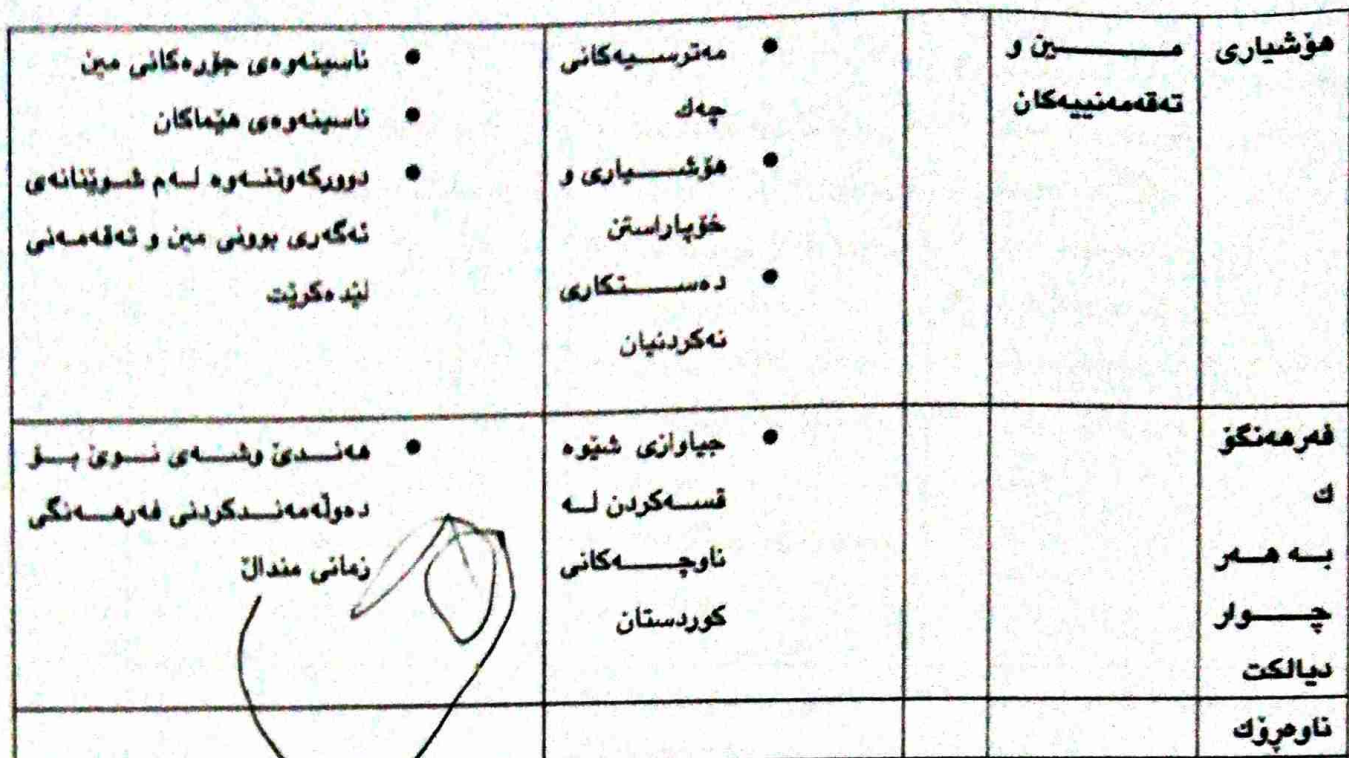 هۆشیاری
مـــــین و
تەقەمەنییەکان
مەترسـیەکانی
چەك
هۆشـــیاری و
خۆپاراستن
دەســـتکاری
نەکردنیان
ناسینەوەی جۆرەکانی مین
ناسینەوەی هێماکان
دوورکەوتنـەوە لـەم شـوێنانەی
ئەگەری بوونی مین و تەقەمـەنی
لێدەکرێت
فەرهەنگۆ
ك
بـە هـەر
چـــوار
دیالکت
جیاوازی شێوە
قسـەکردن لـە
ناوچـــەکانی
کوردستان
هەنـدێ وشـەی نـوێ بـۆ
دەوڵەمەنـدکردنی فەرهـەنگی
زمانی منداڵ
ناوەڕۆك